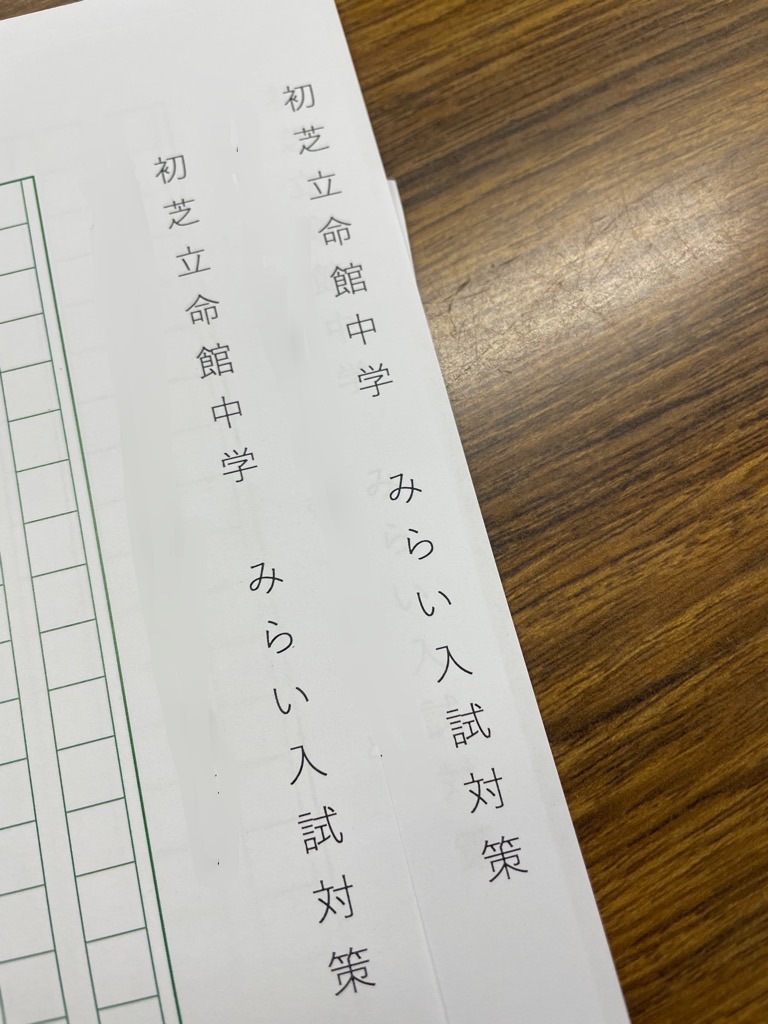 初芝立命館中学　みらい入試対策
初芝立命館中学　みらい入試対策